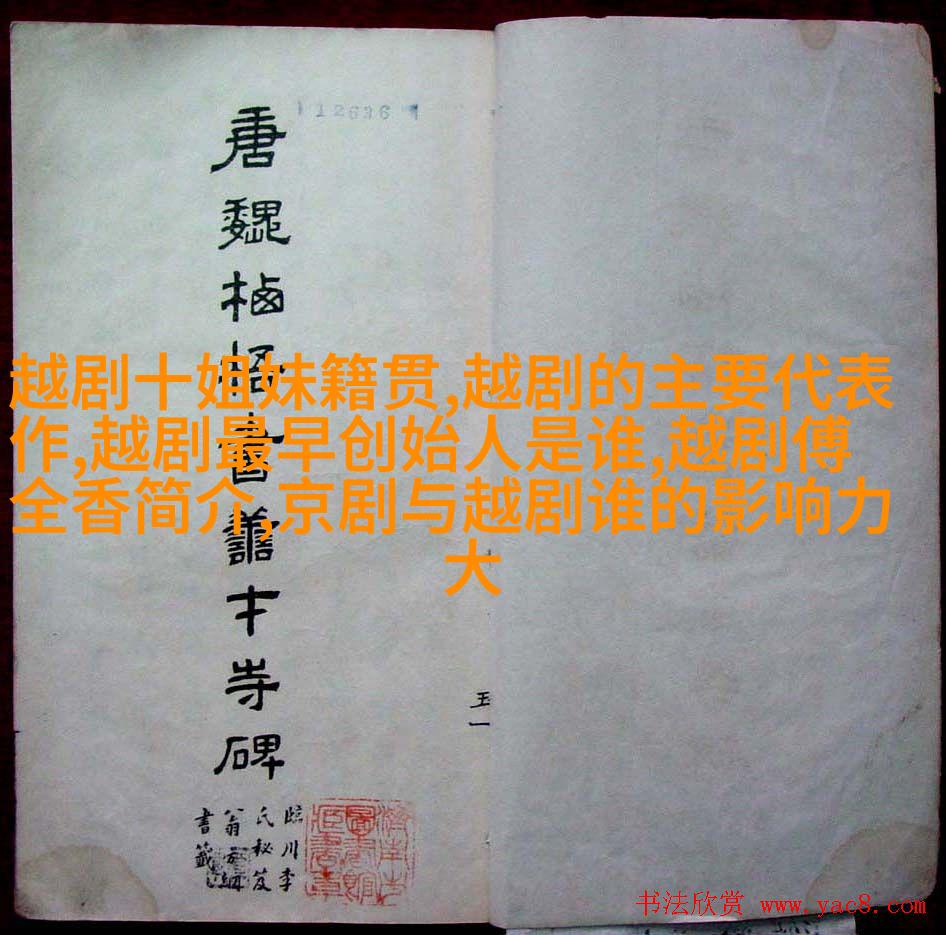 12636
唐魏栖梧書善才寺碑
臨川李
氏秘笈
翁方綱
書籤
濟南市
圖書館
藏書章
越剧十姐妹籍贯,越剧的主要代表
作,越剧最早创始人是谁,越剧傅
全香简介,京剧与越剧谁的影响力
大
书法欣赏 www.yac8.com